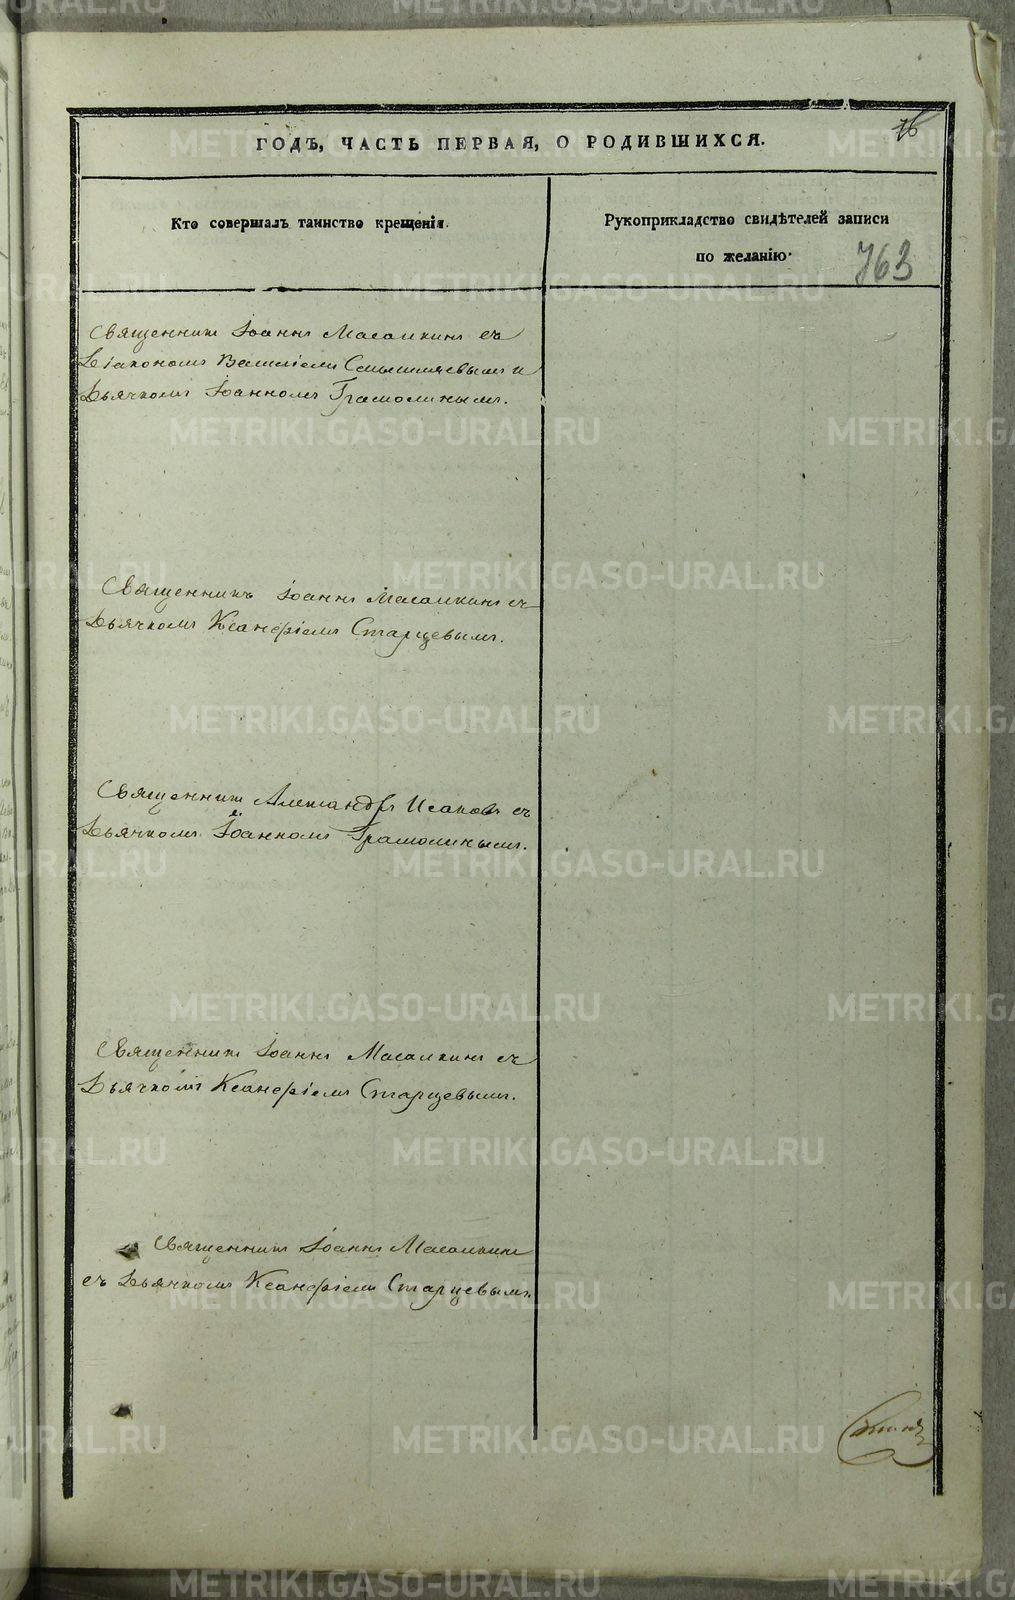 76
ГОДЪ, ЧАСТЬ ПЕРВАЯ, О РОДИВШИХСЯ.
Кто совершалъ таинство крещенія.
Рукоприкладство свидѣтелей записи
по желанію.
763
Священникъ Іоаннъ Масалкинъ съ
Діакономъ Василіемъ Смышляевымъ и
Дьячкомъ Іоанномъ Грамолинымъ.
Священникъ Іоаннъ Масалкинъ съ
Дьячкомъ Ксанфіемъ Старцевымъ.
Священникъ Александръ Исаковъ съ
Дьячкомъ Іоанномъ Грамолинымъ.
Священникъ Іоаннъ Масалкинъ съ
Дьячкомъ Ксанфіемъ Старцевымъ.
Священникъ Іоаннъ Масалкинъ
съ Дьячкомъ Ксанфіемъ Старцевымъ.
METRIKI.GASO-URAL.RU